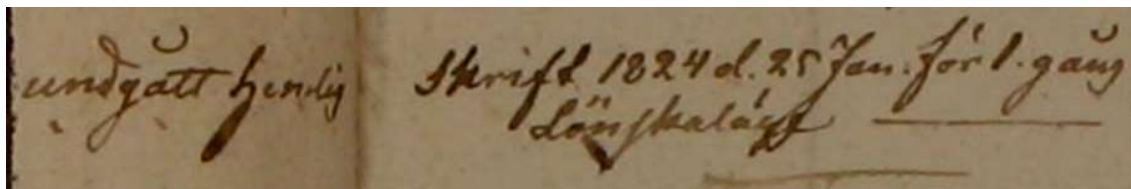 undgått hemlig Skrift 1824 d. 25 Jan. för 1. gång
Lönskaläge